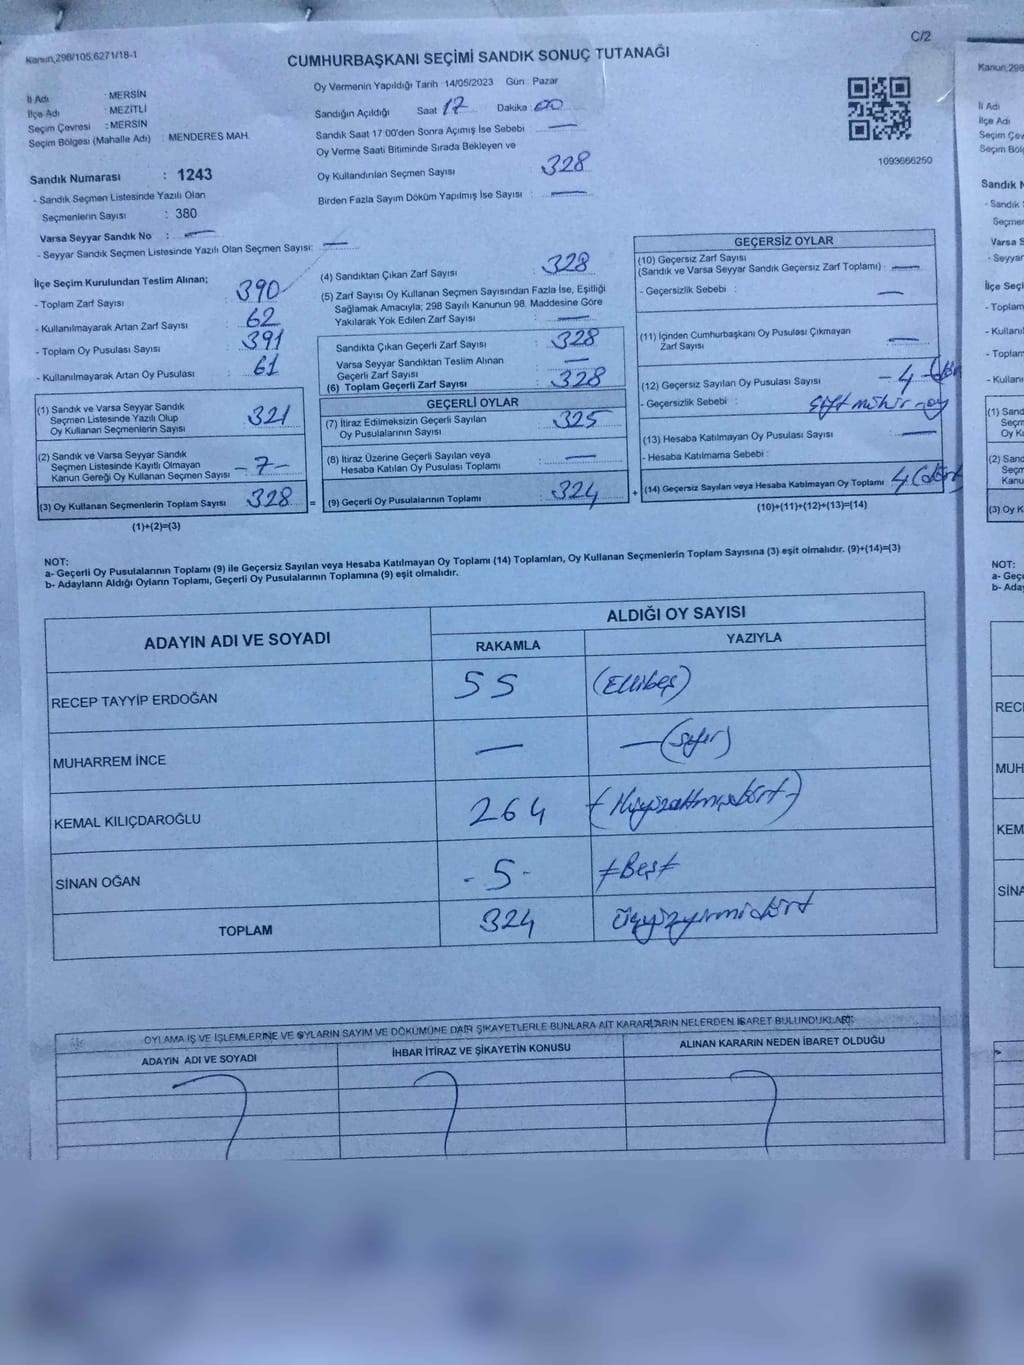 C/2
Kanun,298/105,6271/18-1
CUMHURBAŞKANI SEÇİMİ SANDIK SONUÇ TUTANAĞI
İl Adı : MERSİN
İlçe Adı : MEZİTLİ
Seçim Çevresi : MERSİN
Seçim Bölgesi (Mahalle Adı) : MENDERES MAH.
Sandık Numarası : 1243
- Sandık Seçmen Listesinde Yazılı Olan
Seçmenlerin Sayısı : 380
Varsa Seyyar Sandık No : —
- Seyyar Sandık Seçmen Listesinde Yazılı Olan Seçmen Sayısı: —
Oy Vermenin Yapıldığı Tarih : 14/05/2023 Gün : Pazar
Sandığın Açıldığı Saat 17 Dakika : 00
Sandık Saat 17:00'den Sonra Açımış İse Sebebi : —
Oy Verme Saati Bitiminde Sırada Bekleyen ve
Oy Kullandırılan Seçmen Sayısı : 328
Birden Fazla Sayım Döküm Yapılmış İse Sayısı : —
1093666250
İlçe Seçim Kurulundan Teslim Alınan;
- Toplam Zarf Sayısı : 390
- Kullanılmayarak Artan Zarf Sayısı : 62
- Toplam Oy Pusulası Sayısı : 391
- Kullanılmayarak Artan Oy Pusulası : 61
(1) Sandık ve Varsa Seyyar Sandık
Seçmen Listesinde Yazılı Olup
Oy Kullanan Seçmenlerin Sayısı : 321
(2) Sandık ve Varsa Seyyar Sandık
Seçmen Listesinde Kayıtlı Olmayan
Kanun Gereği Oy Kullanan Seçmen Sayısı -7-
(3) Oy Kullanan Seçmenlerin Toplam Sayısı 328 =
(1)+(2)=(3)
(4) Sandıktan Çıkan Zarf Sayısı : 328
(5) Zarf Sayısı Oy Kullanan Seçmen Sayısından Fazla İse, Eşitliği
Sağlamak Amacıyla; 298 Sayılı Kanunun 98. Maddesine Göre
Yakılarak Yok Edilen Zarf Sayısı : —
Sandıkta Çıkan Geçerli Zarf Sayısı : 328
Varsa Seyyar Sandıktan Teslim Alınan
Geçerli Zarf Sayısı : —
(6) Toplam Geçerli Zarf Sayısı : 328
GEÇERLİ OYLAR
(7) İtiraz Edilmeksizin Geçerli Sayılan
Oy Pusulalarının Sayısı : 325
(8) İtiraz Üzerine Geçerli Sayılan veya
Hesaba Katılan Oy Pusulası Toplamı : —
(9) Geçerli Oy Pusulalarının Toplamı : 324 +
GEÇERSİZ OYLAR
(10) Geçersiz Zarf Sayısı
(Sandık ve Varsa Seyyar Sandık Geçersiz Zarf Toplamı) : —
- Geçersizlik Sebebi : —
(11) İçinden Cumhurbaşkanı Oy Pusulası Çıkmayan
Zarf Sayısı : —
(12) Geçersiz Sayılan Oy Pusulası Sayısı : -4-
- Geçersizlik Sebebi : Çift mühür oy
(13) Hesaba Katılmayan Oy Pusulası Sayısı : —
- Hesaba Katılmama Sebebi :
(14) Geçersiz Sayılan veya Hesaba Katılmayan Oy Toplamı : 4 (dört
(10)+(11)+(12)+(13)=(14)
NOT:
a- Geçerli Oy Pusulalarının Toplamı (9) ile Geçersiz Sayılan veya Hesaba Katılmayan Oy Toplamı (14) Toplamları, Oy Kullanan Seçmenlerin Toplam Sayısına (3) eşit olmalıdır. (9)+(14)=(3)
b- Adayların Aldığı Oyların Toplamı, Geçerli Oy Pusulalarının Toplamına (9) eşit olmalıdır.
ADAYIN ADI VE SOYADI ALDIĞI OY SAYISI
RAKAMLA YAZIYLA
RECEP TAYYİP ERDOĞAN 55 (Ellibeş)
MUHARREM İNCE — —(sıfır)
KEMAL KILIÇDAROĞLU 264 (İkiyüzaltmışdört-)
SİNAN OĞAN -5- Beş
TOPLAM 324 üçyüzyirmidört
OYLAMA İŞ VE İŞLEMLERİNE VE OYLARIN SAYIM VE DÖKÜMÜNE DAİR ŞİKAYETLERLE BUNLARA AİT KARARLARIN NELERDEN İBARET BULUNDUKLARI:
ADAYIN ADI VE SOYADI İHBAR İTİRAZ VE ŞİKAYETİN KONUSU ALINAN KARARIN NEDEN İBARET OLDUĞU